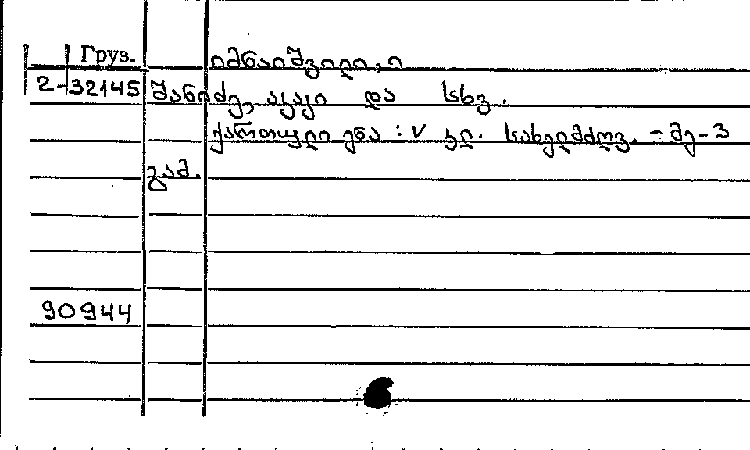 Груз. იმნაიშვილი, ი
2-32145 შანიძე, აკაკი და სხვ.
ქართული ენა : V კლ. სახელმძღვ. - მე-3
გამ.
90944